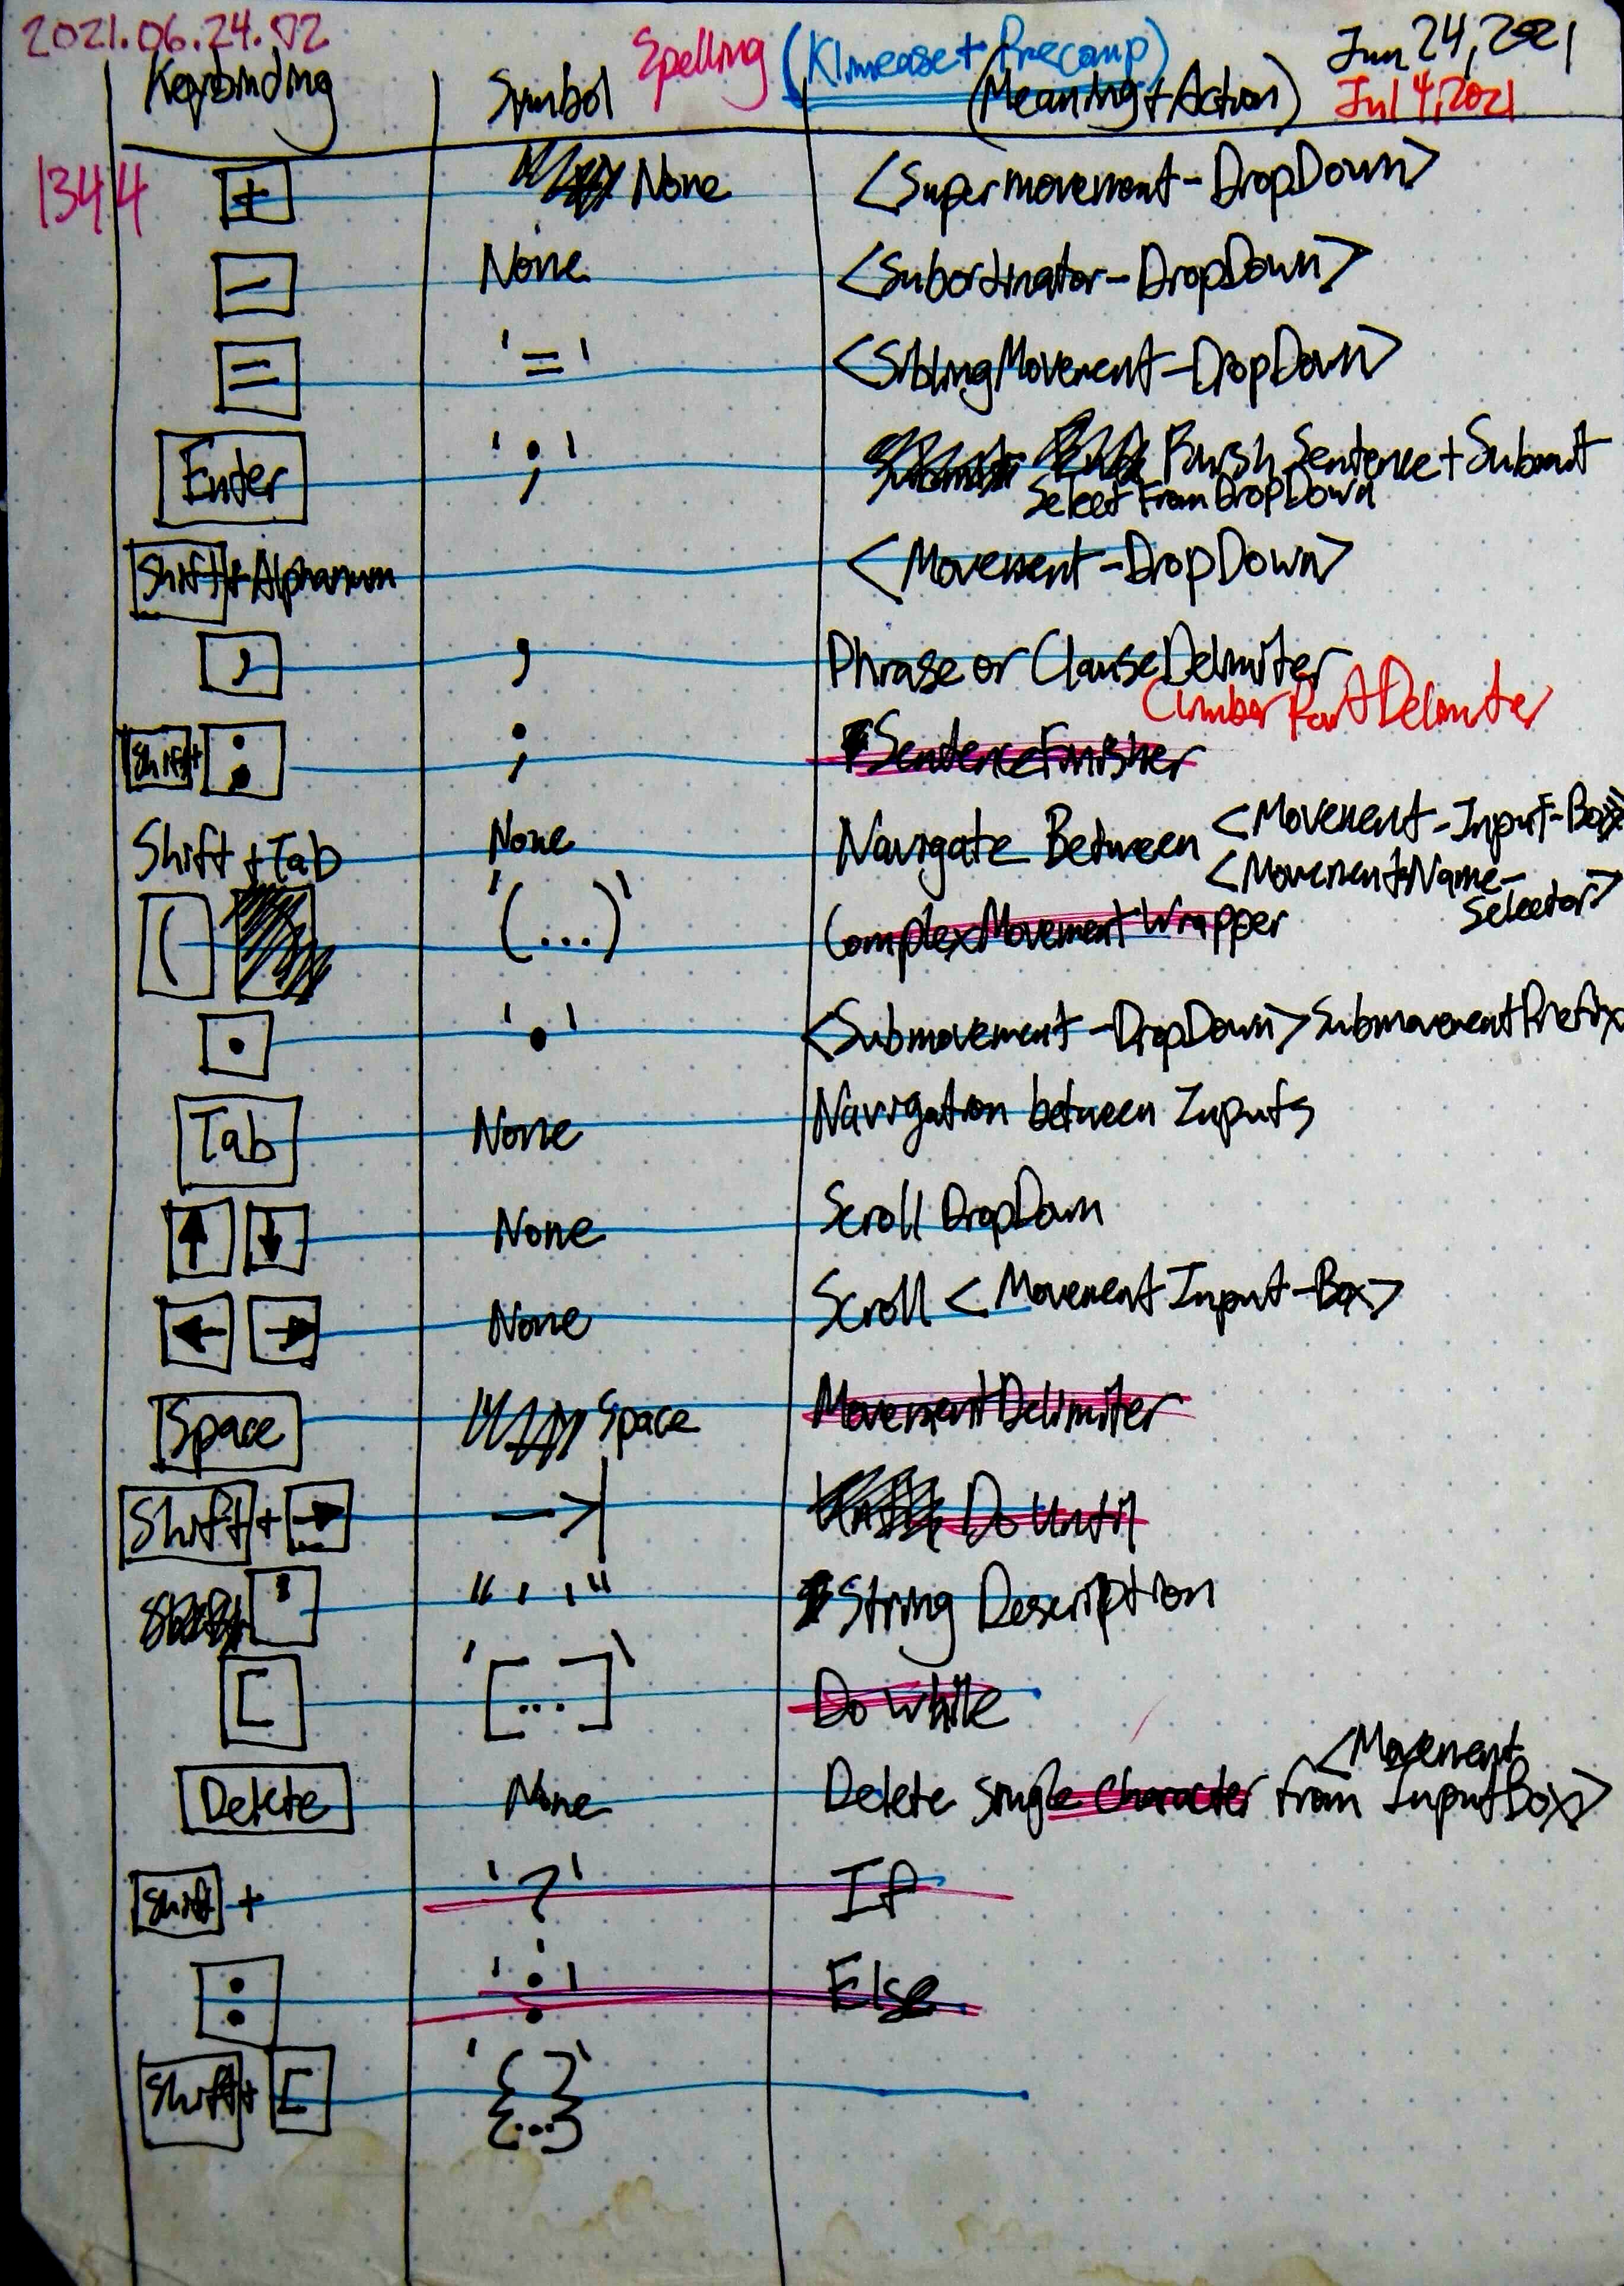 2021.06.24.02
Spelling (Klimease + Precomp) Jun 24, 2021
Keybinding Symbol (Meaning + Action) Jul 4, 2021
1344
+ None <Supermovement-DropDown>
- None <Subordinator-DropDown>
= '=' <SiblingMovement-DropDown>
Enter ';' Finish Sentence + Submit
Select From DropDown
Shift + Alphanum <Movement-DropDown>
, , Phrase or Clause Delimiter
Climber Part Delimiter
Shift + : ; Sentence Finisher
Shift + Tab None Navigate Between <Movement-Input-Box>
<MovementName-
Selector>
( '(...)' ComplexMovement Wrapper
. '.' <Submovement-DropDown> SubmovementPrefix
Tab None Navigation between Inputs
↑ ↓ None Scroll DropDown
← → None Scroll <Movement Input-Box>
Space Space Movement Delimiter
Shift + → —>| Do Until
' "..." String Description
[ '[...]' Do While
Delete None Delete single character from <Movement
InputBox>
Shift + '?' If
: ':' Else
Shift + [ '{...}'